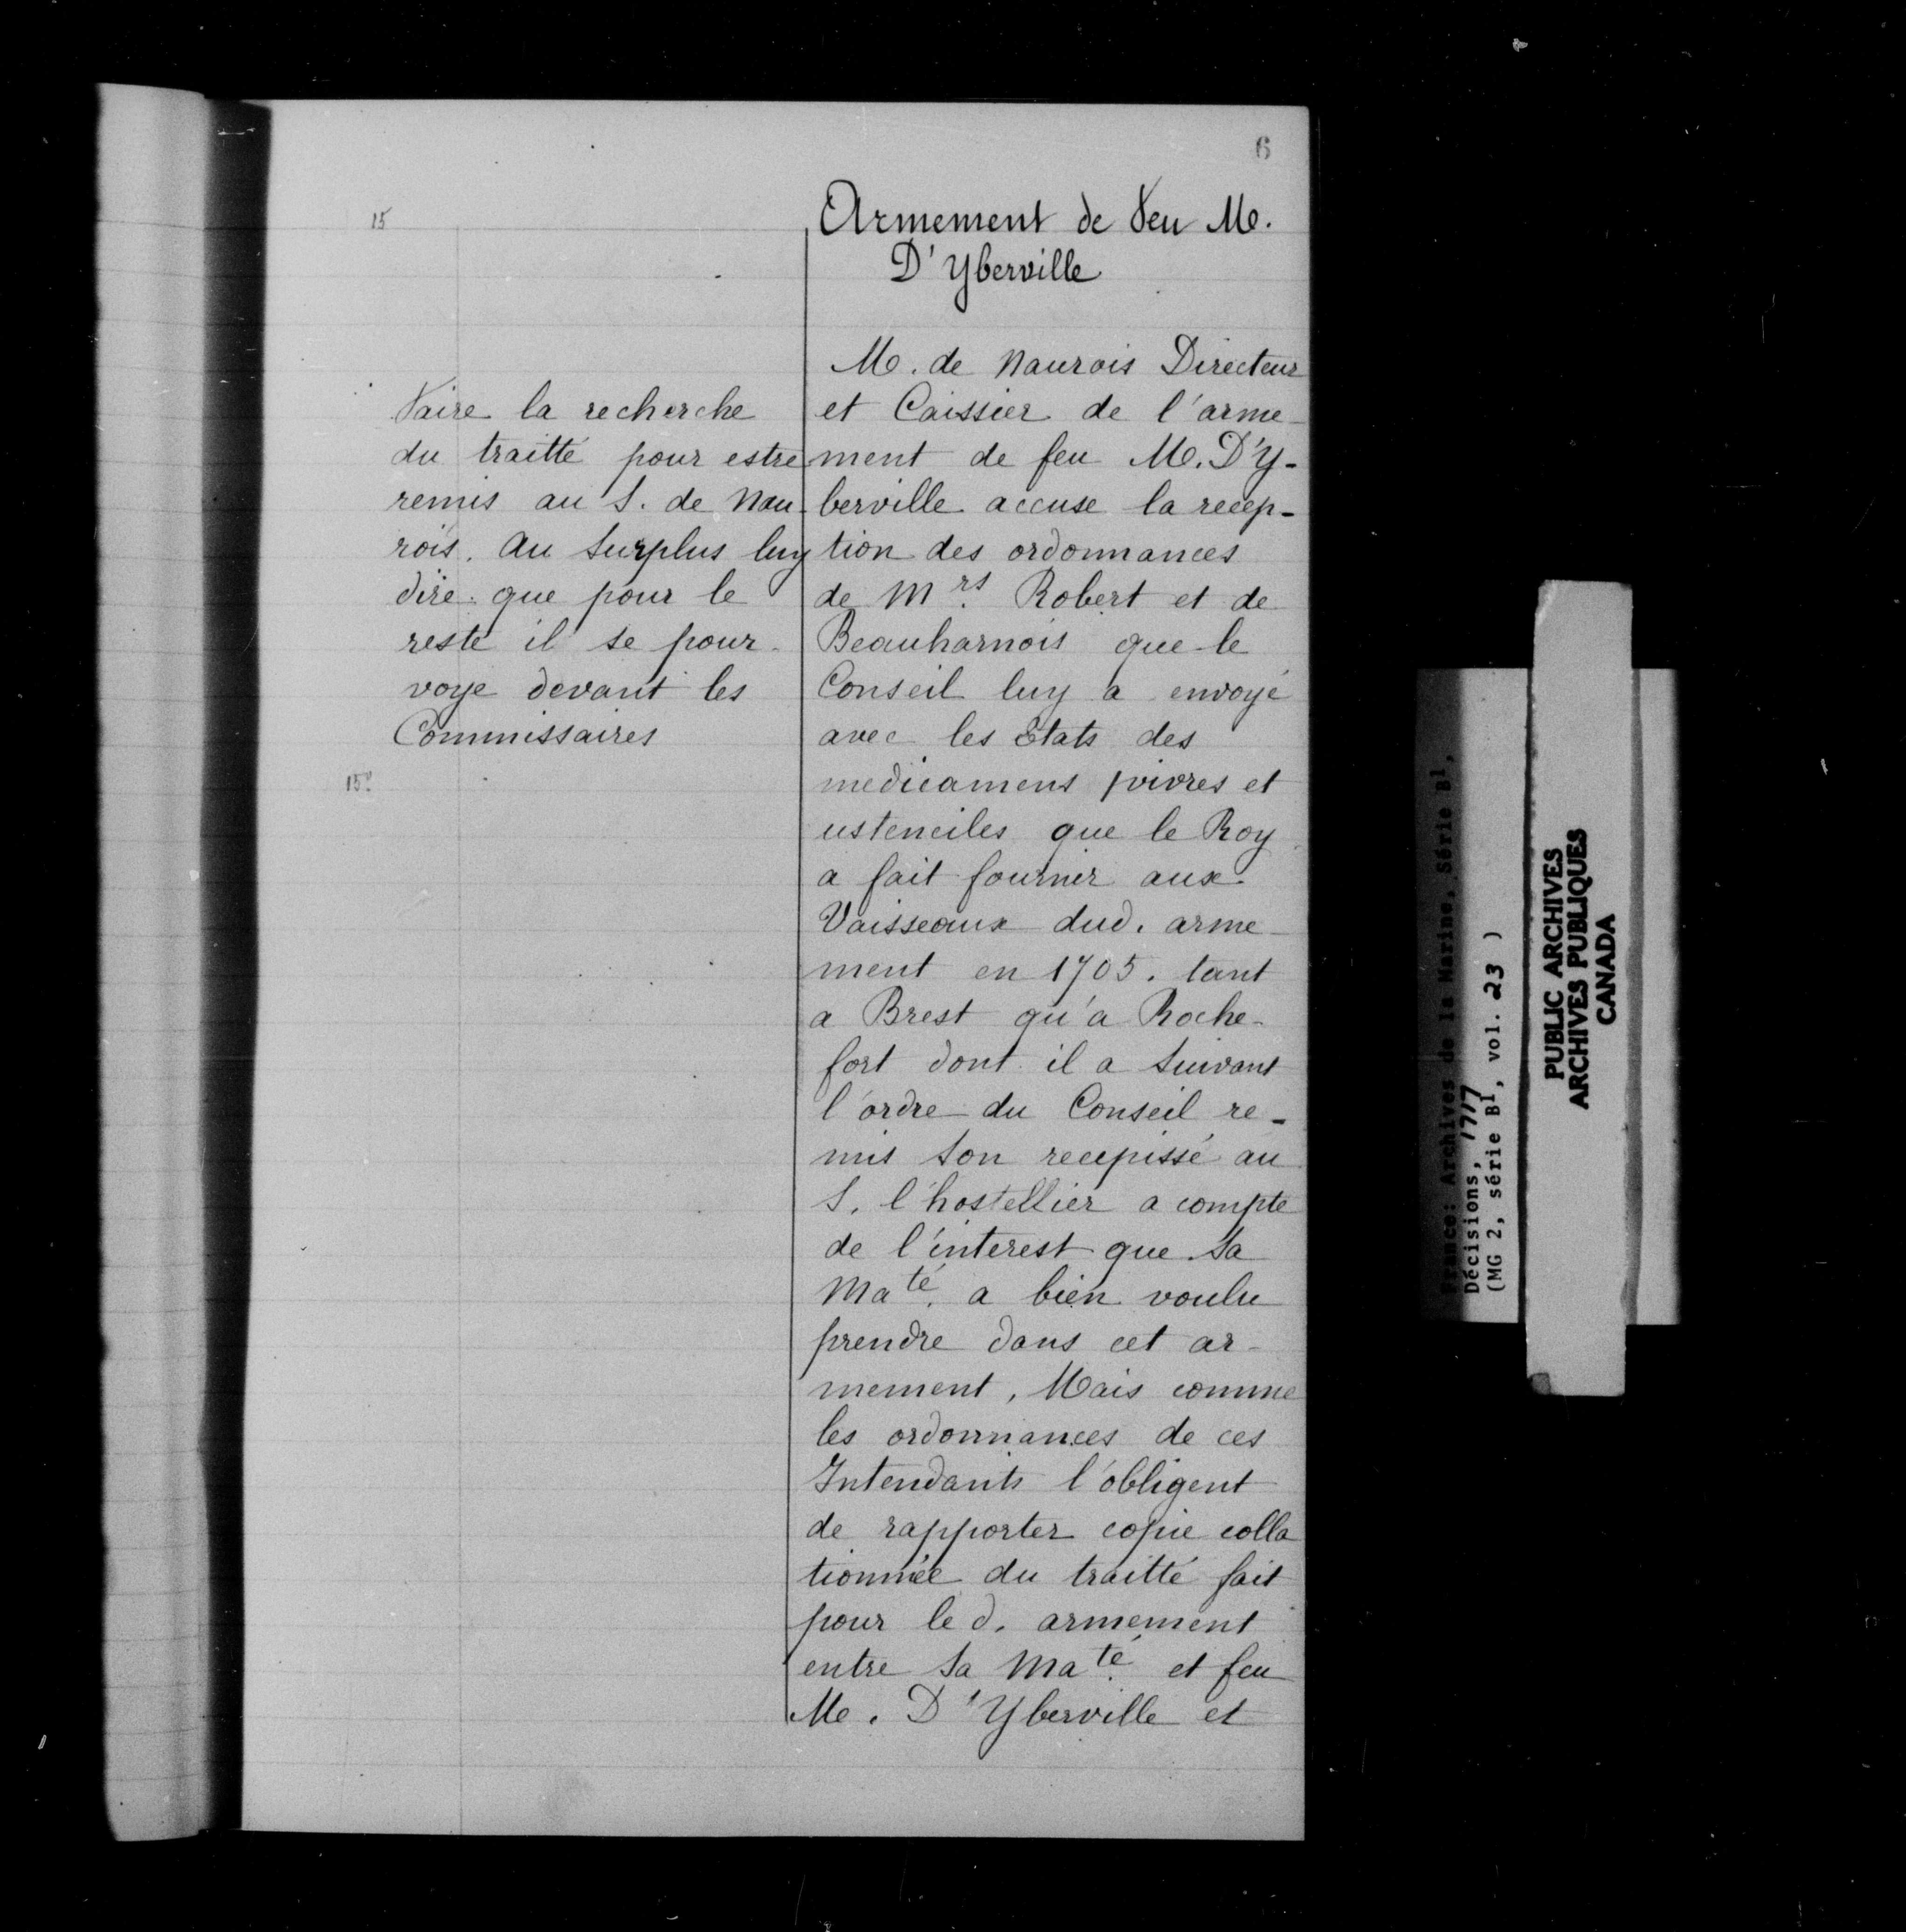 6
15
Armement de feu M.
D'Yberville
Faire la recherche
du traitté pour estre
remis au S. de Nau-
rois. Au surplus luy
dire que pour le
reste il se pour-
voye devant les
Commissaires
15v
M. de Naurois Directeur
et Caissier de l'arme-
ment de feu M. D'Y-
berville accuse la recep-
tion des ordonnances
de Mrs. Robert et de
Beauharnois que le
Conseil luy a envoyé
avec les Etats des
medicamens vivres et
usteneiles que le Roy
a fait fournir aux
Vaisseaux dud. arme-
ment en 1705. tant
a Brest qu'a Roche-
fort dont il a suivant
l'ordre du Conseil re-
mis son recepissé au
S. l'hostellier a compte
de l'interest que sa
Maté. a bien voulu
prendre dans cet ar-
mement, Mais comme
les ordonnances de ces
Intendants l'obligent
de rapporter copie colla
tionnée du traitté fait
pour led. armement
entre sa Maté. et feu
M. D'Yberville et
France: Archives de la Marine, Série B1,
Décisions, 1717
(MG 2, série B1, vol. 23 )
PUBLIC ARCHIVES
ARCHIVES PUBLIQUES
CANADA